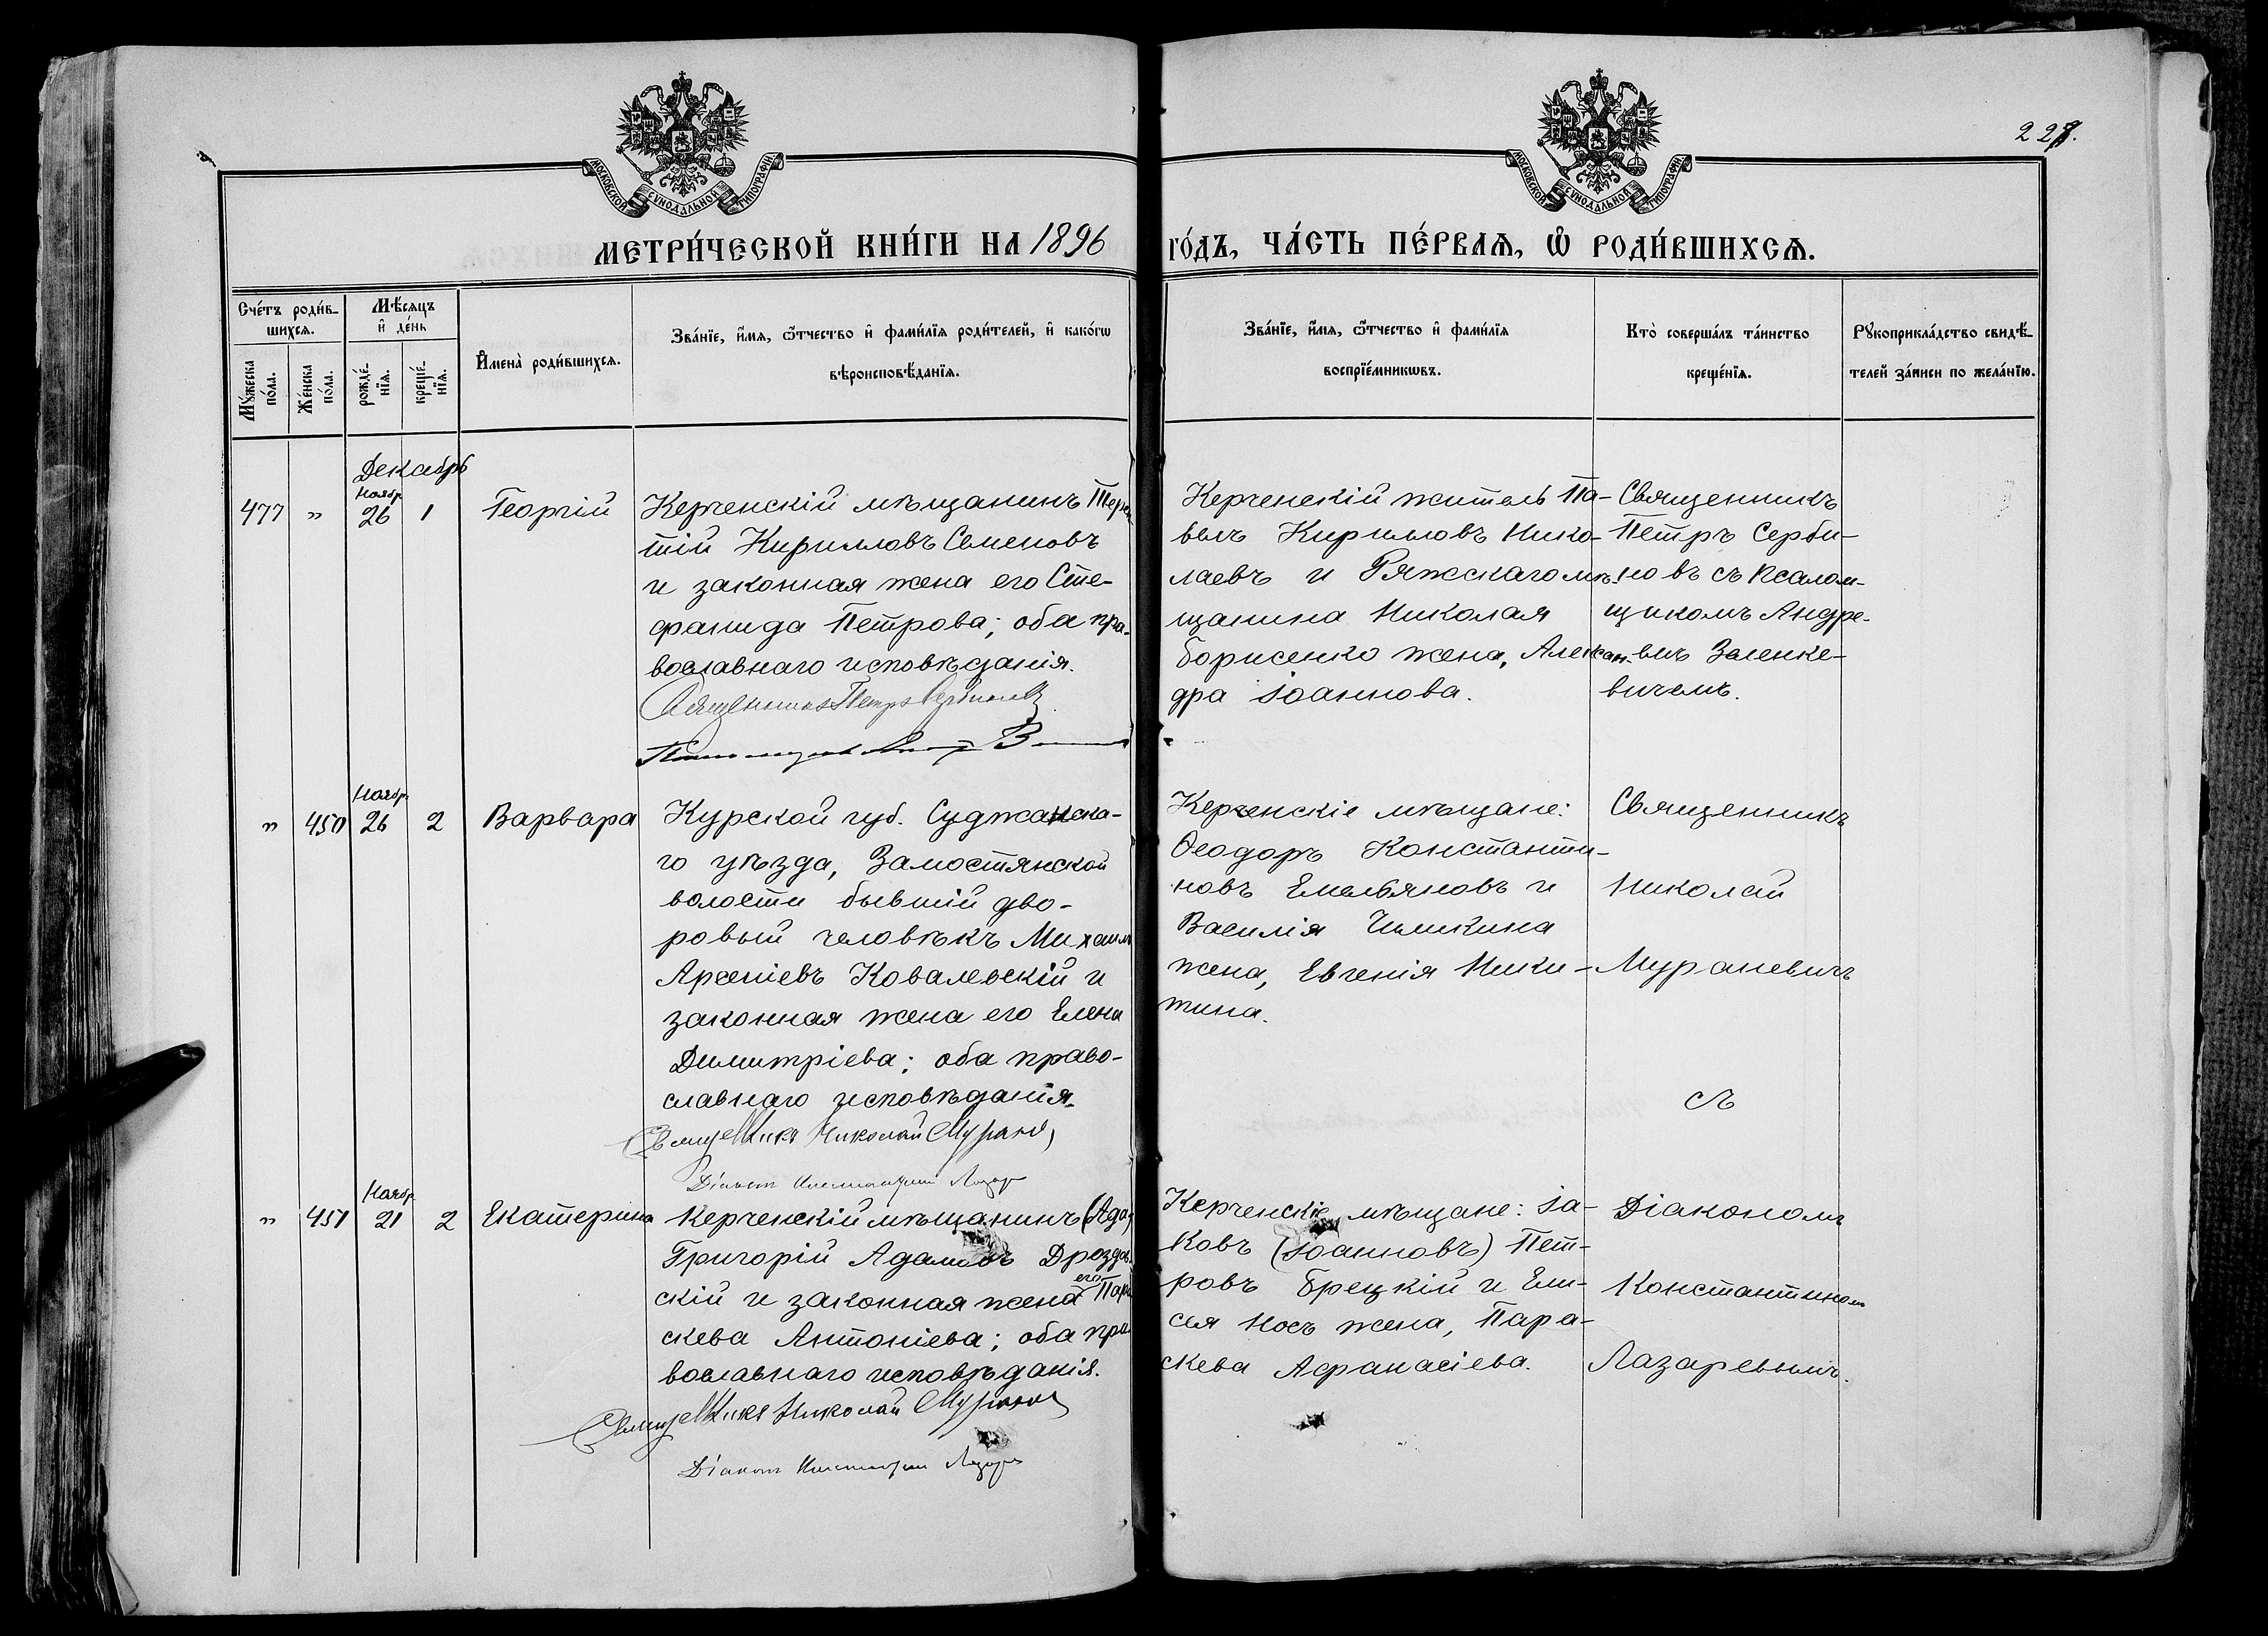 228.
МОСКОВСКОЙ СѴНОДАЛЬНОЙ ТИПОГРАФІИ
МОСКОВСКОЙ СѴНОДАЛЬНОЙ ТИПОГРАФІИ
МЕТРИ́ЧЕСКОЙ КНИ́ГИ НА 1896 ГО́ДЪ, ЧА́СТЬ ПЕ́РВАѦ, Ѡ҆ РОДИ́ВШИХСѦ.
Сче́тъ роди́в-
шихся.
Мꙋжеска
по́ла.
Же́нска
по́ла.
Мѣ́сяцъ
и҆ де́нь
рожде́-
нїѧ.
креще́-
нїѧ.
И҆мена̀ роди́вшихсѧ.
Зва́нїе, и҆́мѧ, ѻ҆́тчество и҆ фами́лїѧ роди́телей, и҆ како́гѡ
вѣроисповѣ́данїѧ.
Зва́нїе, и҆́мѧ, ѻ҆́тчество и҆ фами́лїѧ
воспрїе́мникѡвъ.
Кто̀ соверша́лъ та́инство
креще́нїѧ.
Рꙋкоприкла́дство свидѣ́-
телей за́писи по жела́нїю.
Декабрь
477 " Ноябр. 26 1 Георгій
Керченскій мѣщанинъ Терен-
тій Кирилловъ Семеновъ
и законная жена его Сте-
фанида Петрова; оба пра-
вославнаго исповѣданія.
Священникъ Петръ Сербиновъ
Керченскій житель Па-
велъ Кирилловъ Нико-
лаевъ и Ряжскаго мѣ-
щанина Николая
Борисенко жена, Алексан-
дра Іоаннова.
Священникъ
Петръ Серби-
новъ съ псалом-
щикомъ Андре-
емъ Зеленке-
вичемъ.
" 450 Ноябр. 26 2 Варвара
Курской губ. Суджанска-
го уѣзда, Замостянской
волости бывшій дво-
ровый человѣкъ Михаилъ
Арсеніевъ Ковалевскій и
законная жена его Елена
Димитріева; оба право-
славнаго исповѣданія.
Священникъ Николай Мураневичъ
Діаконъ Константинъ Лазаревъ
Керченскіе мѣщане:
Ѳеодоръ Константи-
новъ Емельяновъ и
Василія Чишкина
жена, Евгенія Ники-
тина.
Священникъ
Николай
Мураневичъ
съ
" 451 Ноябр. 21 2 Екатерина
Керченскій мѣщанинъ (Ада)
Григорій Адамовъ Дроздов-
скій и законная жена его Пара-
скева Антоніева; оба пра-
вославнаго исповѣданія.
Священникъ Николай Мураневичъ
Діаконъ Константинъ Лазаревъ
Керченскіе мѣщане: Іа-
ковъ (Іоанновъ) Пет-
ровъ Грецкій и Ели-
сея Носъ жена, Пара-
скева Афанасіева.
Діакономъ
Константиномъ
Лазаревымъ.